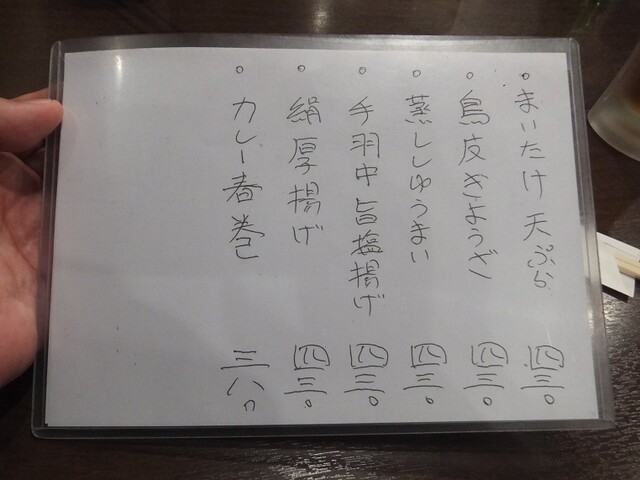 。まいたけ天ぷら 四三〇
。鳥皮ぎょうざ 四三〇
。蒸ししゅうまい 四三〇
。手羽中旨塩揚げ 四三〇
。絹厚揚げ 四三〇
。カレー春巻 三八〇